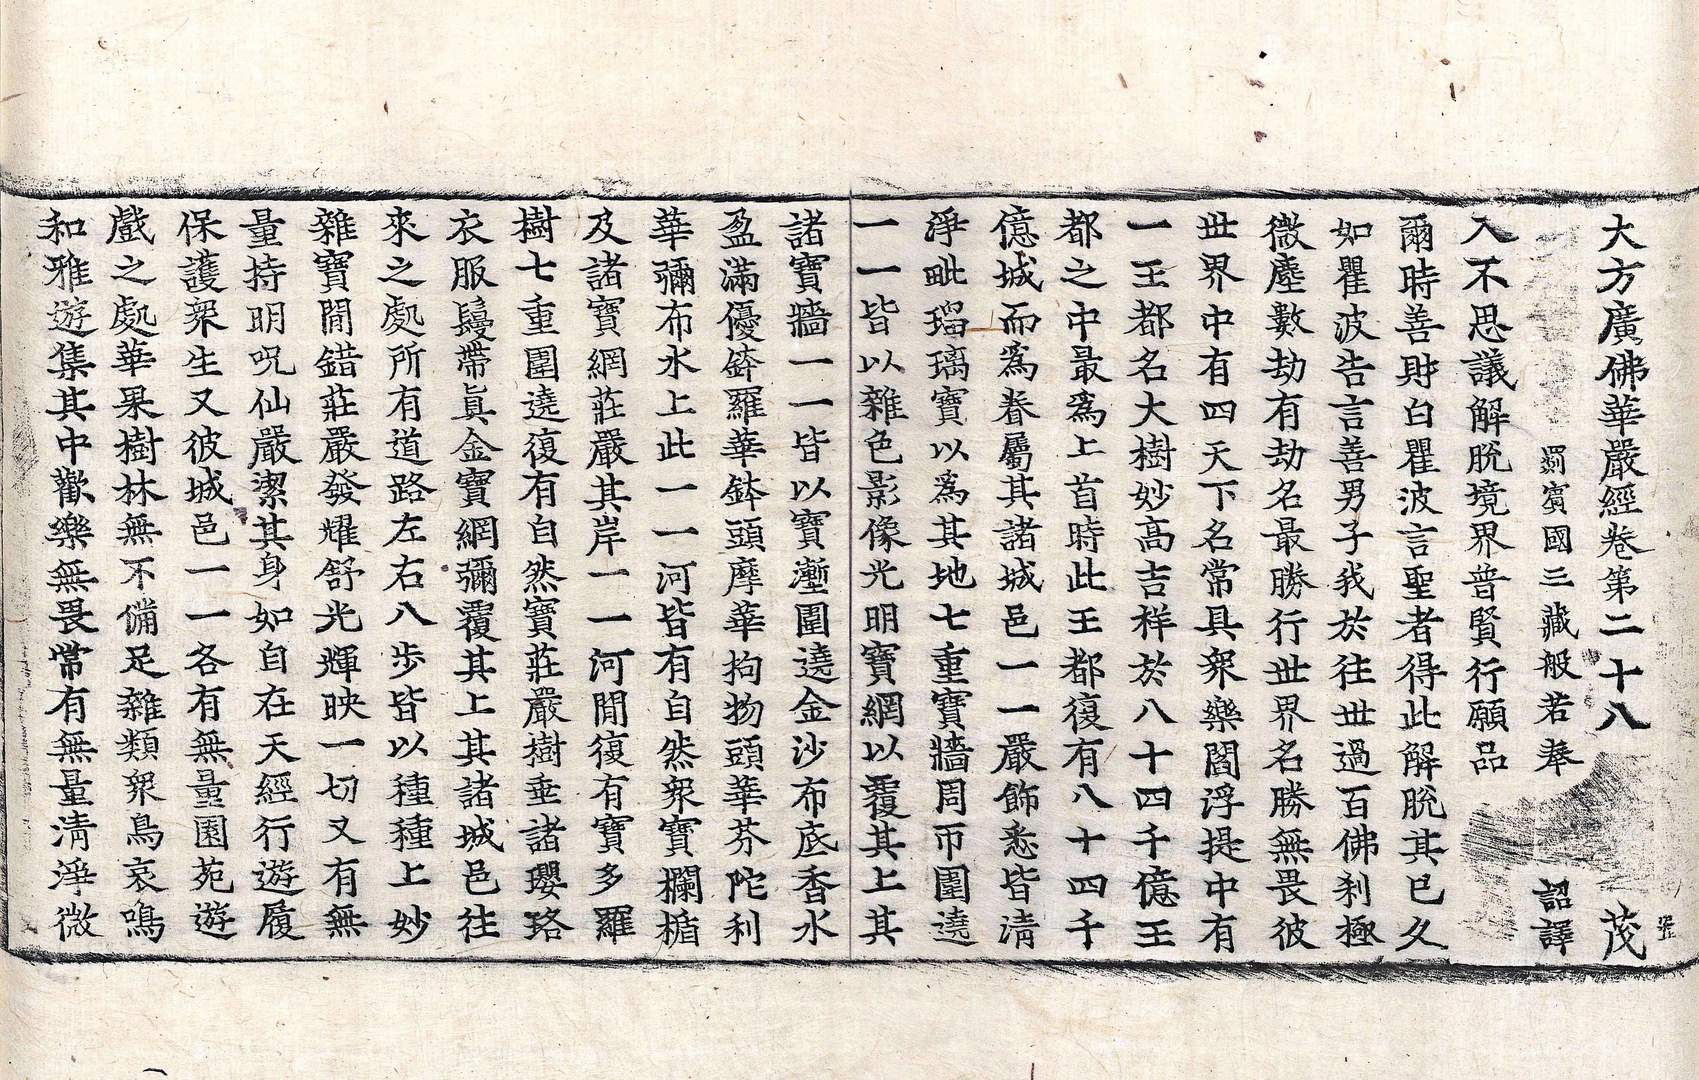 大方廣佛華嚴經卷第二十八　茂
罽賓國三藏般若奉　詔譯
入不思議解脫境界普賢行願品
爾時善財白瞿波言聖者得此解脫其已久
如瞿波告言善男子我於往世過百佛刹極
微塵數劫有劫名最勝行世界名勝無畏彼
世界中有四天下名常具衆樂閻浮提中有
一王都名大樹妙高吉祥於八十四千億王
都之中最爲上首時此王都復有八十四千
億城而爲眷屬其諸城邑一一嚴飾悉皆淸
淨毗瑠璃寶以爲其地七重寶牆周帀圍遶
一一皆以雜色影像光明寶網以覆其上其
諸寶牆一一皆以寶壍圍遶金沙布底香水
盈滿優鉢羅華鉢頭摩華拘物頭華芬陀利
華彌布水上此一一河皆有自然衆寶欄楯
及諸寶網莊嚴其岸一一河閒復有寶多羅
樹七重圍遶復有自然寶莊嚴樹垂諸瓔珞
衣服鬘帶眞金寶網彌覆其上其諸城邑往
來之處所有道路左右八步皆以種種上妙
雜寶閒錯莊嚴發耀舒光輝映一切又有無
量持明呪仙嚴潔其身如自在天經行遊履
保護衆生又彼城邑一一各有無量園苑遊
戲之處華果樹林無不備足雜類衆鳥哀鳴
和雅遊集其中歡樂無畏常有無量淸淨微